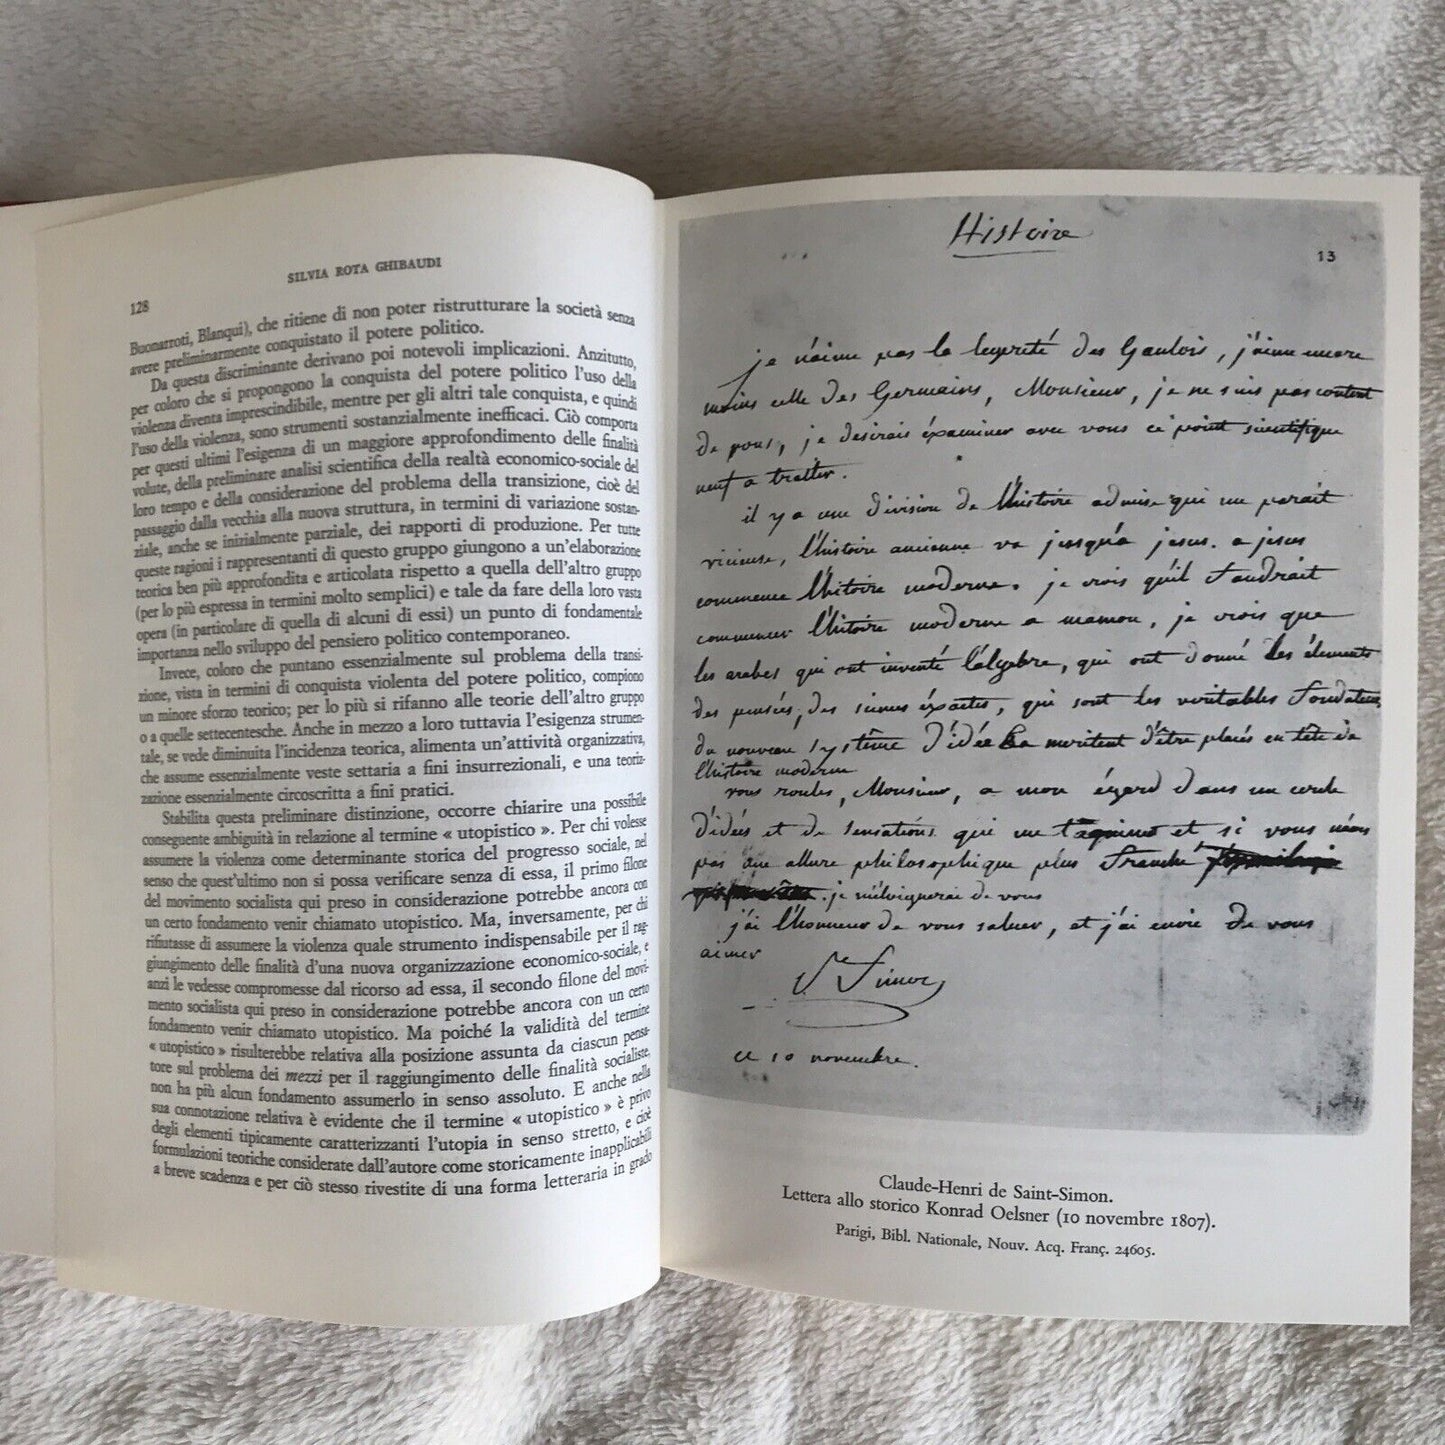 SILVIA ROTA GHIBAUDI
128
Buonarroti, Blanqui), che ritiene di non poter ristrutturare la società senza
avere preliminarmente conquistato il potere politico.
Da questa discriminante derivano poi notevoli implicazioni. Anzitutto,
per coloro che si propongono la conquista del potere politico l'uso della
violenza diventa imprescindibile, mentre per gli altri tale conquista, e quindi
l'uso della violenza, sono strumenti sostanzialmente inefficaci. Ciò comporta
per questi ultimi l'esigenza di un maggiore approfondimento delle finalità
volute, della preliminare analisi scientifica della realtà economico-sociale del
loro tempo e della considerazione del problema della transizione, cioè del
passaggio dalla vecchia alla nuova struttura, in termini di variazione sostan-
ziale, anche se inizialmente parziale, dei rapporti di produzione. Per tutte
queste ragioni i rappresentanti di questo gruppo giungono a un'elaborazione
teorica ben più approfondita e articolata rispetto a quella dell'altro gruppo
(per lo più espressa in termini molto semplici) e tale da fare della loro vasta
opera (in particolare di quella di alcuni di essi) un punto di fondamentale
importanza nello sviluppo del pensiero politico contemporaneo.
Invece, coloro che puntano essenzialmente sul problema della transi-
zione, vista in termini di conquista violenta del potere politico, compiono
un minore sforzo teorico; per lo più si rifanno alle teorie dell'altro gruppo
o a quelle settecentesche. Anche in mezzo a loro tuttavia l'esigenza strumen-
tale, se vede diminuita l'incidenza teorica, alimenta un'attività organizzativa,
che assume essenzialmente veste settaria a fini insurrezionali, e una teoriz-
zazione essenzialmente circoscritta a fini pratici.
Stabilita questa preliminare distinzione, occorre chiarire una possibile
conseguente ambiguità in relazione al termine « utopistico ». Per chi volesse
assumere la violenza come determinante storica del progresso sociale, nel
senso che quest'ultimo non si possa verificare senza di essa, il primo filone
del movimento socialista qui preso in considerazione potrebbe ancora con
un certo fondamento venir chiamato utopistico. Ma, inversamente, per chi
rifiutasse di assumere la violenza quale strumento indispensabile per il rag-
giungimento delle finalità d'una nuova organizzazione economico-sociale, e
anzi le vedesse compromesse dal ricorso ad essa, il secondo filone del movi-
mento socialista qui preso in considerazione potrebbe ancora con un certo
fondamento venir chiamato utopistico. Ma poiché la validità del termine
« utopistico » risulterebbe relativa alla posizione assunta da ciascun pensa-
tore sul problema dei mezzi per il raggiungimento delle finalità socialiste,
non ha più alcun fondamento assumerlo in senso assoluto. E anche nella
sua connotazione relativa è evidente che il termine « utopistico » è privo
degli elementi tipicamente caratterizzanti l'utopia in senso stretto, e cioè
formulazioni teoriche considerate dall'autore come storicamente inapplicabili
a breve scadenza e per ciò stesso rivestite di una forma letteraria in grado
Histoire
13
je n'aime pas la legereté des Gaulois, j'aime encore
moins celle des Germains, Monsieur, je ne suis pas content
de vous, je desirais éxaminer avec vous ce point scientifique
neuf a traiter.
il y a une division de l'histoire admise qui me parait
vicieuse, l'histoire ancienne va jusqu'à jesus. a jesus
commence l'hitoire moderne. je crois qu'il faudrait
commencer l'hitoire moderne a mamou, je crois que
les arabes qui ont inventé l'algebre, qui ont donné les élements
des pensées, des siences éxactes, qui sont les veritables fondateurs
du nouveau système d'idée meritent d'être placés en tête de
l'histoire moderne
vous roules, Monsieur, a mon égard dans un cercle
d'idées et de sensations qui me taquine et si vous
pas une allure philosophique plus franche
je m'eloignerai de vous
j'ai l'honneur de vous saluer, et j'ai envie de vous
aimer
St Simon
ce 10 novembre.
Claude-Henri de Saint-Simon.
Lettera allo storico Konrad Oelsner (10 novembre 1807).
Parigi, Bibl. Nationale, Nouv. Acq. Franç. 24605.